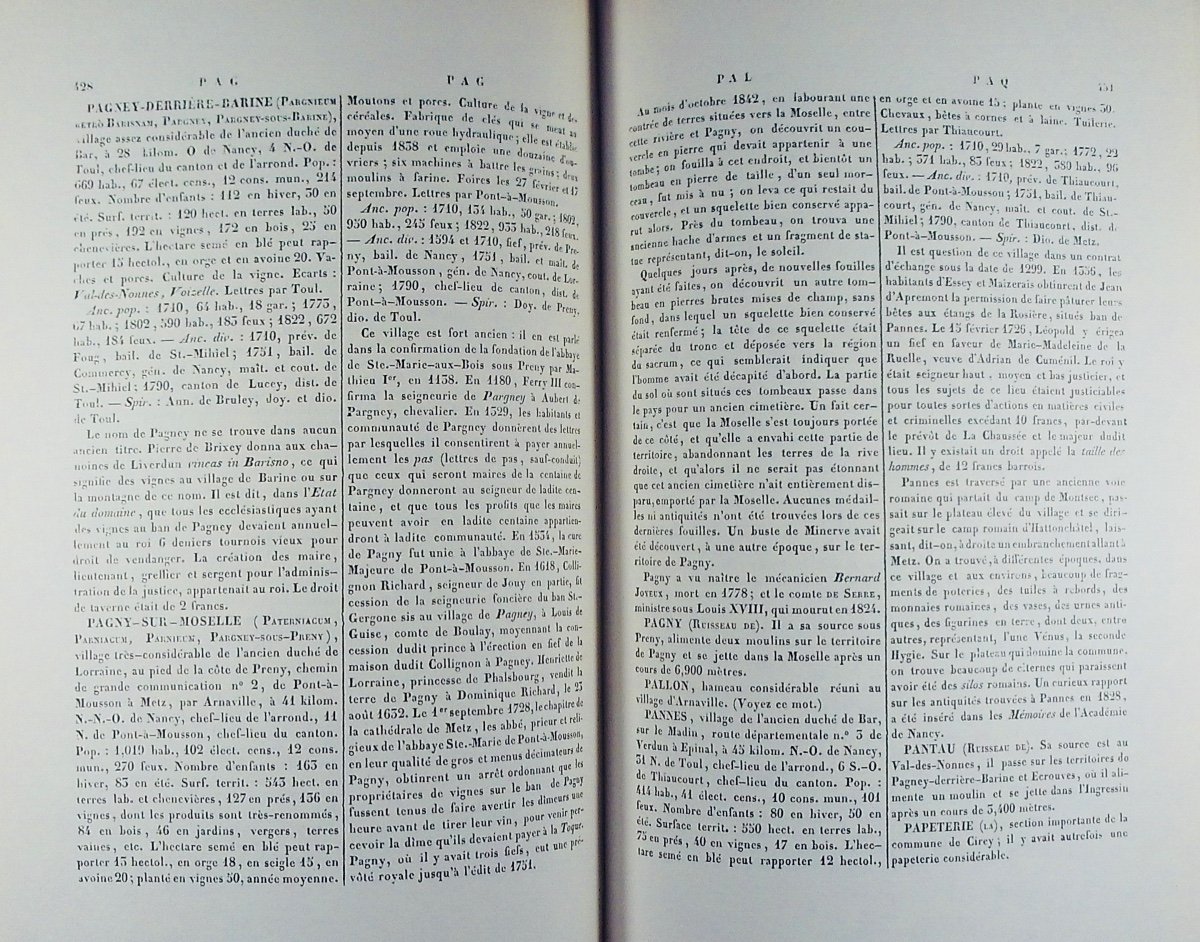 428
PAG
PAGNEY-DERRIÈRE-BARINE (PARGNIEUM
RETRÒ BARISNAM, PARGNEY, PARGNEY-SOUS-BARINE),
village assez considérable de l'ancien duché de
Bar, à 28 kilom. O de Nancy, 4 N.-O. de
Toul, chef-lieu du canton et de l'arrond. Pop. :
669 hab., 67 élect. cens., 12 cons. mun., 214
feux. Nombre d'enfants : 112 en hiver, 50 en
été. Surf. territ. : 120 hect. en terres lab., 50
en prés, 192 en vignes, 172 en bois, 25 en
chenevières. L'hectare semé en blé peut rap-
porter 15 hectol., en orge et en avoine 20. Va-
ches et porcs. Culture de la vigne. Ecarts :
Val-des-Nonnes, Voizelle. Lettres par Toul.
Anc. pop. : 1710, 64 hab., 18 gar.; 1773,
67 hab.; 1802, 590 hab., 185 feux; 1822, 672
hab., 184 feux. — Anc. div. : 1710, prév. de
Foug, bail. de St.-Mihiel; 1751, bail. de
Commercy, gén. de Nancy, maît. et cout. de
St.-Mihiel; 1790, canton de Lucey, dist. de
Toul. — Spir. : Ann. de Bruley, doy. et dio.
de Toul.
Le nom de Pagney ne se trouve dans aucun
ancien titre. Pierre de Brixey donna aux cha-
noines de Liverdun vineas in Barisno, ce qui
signifie des vignes au village de Barine ou sur
la montagne de ce nom. Il est dit, dans l'Etat
du domaine, que tous les ecclésiastiques ayant
des vignes au ban de Pagney devaient annuel-
lement au roi 6 deniers tournois vieux pour
droit de vendanger. La création des maire,
lieutenant, greffier et sergent pour l'adminis-
tration de la justice, appartenait au roi. Le droit
de taverne était de 2 francs.
PAGNY-SUR-MOSELLE (PATERNIACUM,
PARNIACUM, PARNIEUM, PARGNEY-SOUS-PRENY),
village très-considérable de l'ancien duché de
Lorraine, au pied de la côte de Preny, chemin
de grande communication n° 2, de Pont-à-
Mousson à Metz, par Arnaville, à 41 kilom.
N.-N.-O. de Nancy, chef-lieu de l'arrond., 11
N. de Pont-à-Mousson, chef-lieu du canton.
Pop. : 1,019 hab., 102 élect. cens., 12 cons.
mun., 270 feux. Nombre d'enfants : 163 en
hiver, 83 en été. Surf. territ. : 543 hect. en
terres lab. et chenevières, 127 en prés, 136 en
vignes, dont les produits sont très-renommés,
84 en bois, 46 en jardins, vergers, terres
vaines, etc. L'hectare semé en blé peut rap-
porter 15 hectol., en orge 18, en seigle 15, en
avoine 20; planté en vignes 50, année moyenne.
PAG
Moutons et porcs. Culture de la vigne et des
céréales. Fabrique de clés qui se meut au
moyen d'une roue hydraulique; elle est établie
depuis 1838 et emploie une douzaine d'ou-
vriers; six machines à battre les grains; deux
moulins à farine. Foires les 27 février et 17
septembre. Lettres par Pont-à-Mousson.
Anc. pop. : 1710, 134 hab., 50 gar.; 1802,
950 hab., 245 feux; 1822, 953 hab., 218 feux.
— Anc. div. : 1594 et 1710, fief, prév. de Pre-
ny, bail. de Nancy, 1751, bail. et maît. de
Pont-à-Mousson, gén. de Nancy, cout. de Lor-
raine; 1790, chef-lieu de canton, dist. de
Pont-à-Mousson. — Spir. : Doy. de Preny,
dio. de Toul.
Ce village est fort ancien : il en est parlé
dans la confirmation de la fondation de l'abbaye
de Ste.-Marie-aux-Bois sous Preny par Ma-
thieu Ier, en 1138. En 1180, Ferry III con-
firma la seigneurie de Pargney à Aubert de
Pargney, chevalier. En 1329, les habitants et
communauté de Pargney donnèrent des lettres
par lesquelles il consentirent à payer annuel-
lement les pas (lettres de pas, sauf-conduit)
que ceux qui seront maires de la centaine de
Pargney donneront au seigneur de ladite cen-
taine, et que tous les profits que les maires
peuvent avoir en ladite centaine appartien-
dront à ladite communauté. En 1534, la cure
de Pagny fut unie à l'abbaye de Ste.-Marie-
Majeure de Pont-à-Mousson. En 1618, Colli-
gnon Richard, seigneur de Jouy en partie, fit
cession de la seigneurie foncière du ban St.-
Gergone sis au village de Pagney, à Louis de
Guise, comte de Boulay, moyennant la con-
cession dudit prince à l'érection en fief de la
maison dudit Collignon à Pagney. Henriette de
Lorraine, princesse de Phalsbourg, vendit la
terre de Pagny à Dominique Richard, le 23
août 1632. Le 1er septembre 1728, le chapitre de
la cathédrale de Metz, les abbé, prieur et reli-
gieux de l'abbaye Ste.-Marie de Pont-à-Mousson,
en leur qualité de gros et menus décimateurs de
Pagny, obtinrent un arrêt ordonnant que les
propriétaires de vignes sur le ban de Pagny
fussent tenus de faire avertir les dîmeurs une
heure avant de tirer leur vin, pour venir per-
cevoir la dîme qu'ils devaient payer à la Toque.
Pagny, où il y avait trois fiefs, eut une pré-
vôté royale jusqu'à l'édit de 1751.
PAL
Au mois d'octobre 1842, en labourant une
contrée de terres situées vers la Moselle, entre
cette rivière et Pagny, on découvrit un cou-
vercle en pierre qui devait appartenir à une
tombe; on fouilla à cet endroit, et bientôt un
tombeau en pierre de taille, d'un seul mor-
ceau, fut mis à nu; on leva ce qui restait du
couvercle, et un squelette bien conservé appa-
rut alors. Près du tombeau, on trouva une
ancienne hache d'armes et un fragment de sta-
tue représentant, dit-on, le soleil.
Quelques jours après, de nouvelles fouilles
ayant été faites, on découvrit un autre tom-
beau en pierres brutes mises de champ, sans
fond, dans lequel un squelette bien conservé
était renfermé; la tête de ce squelette était
séparée du tronc et déposée vers la région
du sacrum, ce qui semblerait indiquer que
l'homme avait été décapité d'abord. La partie
du sol où sont situés ces tombeaux passe dans
le pays pour un ancien cimetière. Un fait cer-
tain, c'est que la Moselle s'est toujours portée
de ce côté, et qu'elle a envahi cette partie de
territoire, abandonnant les terres de la rive
droite, et qu'alors il ne serait pas étonnant
que cet ancien cimetière n'ait entièrement dis-
paru, emporté par la Moselle. Aucunes médail-
les ni antiquités n'ont été trouvées lors de ces
dernières fouilles. Un buste de Minerve avait
été découvert, à une autre époque, sur le ter-
ritoire de Pagny.
Pagny a vu naître le mécanicien Bernard
JOYEUX, mort en 1778; et le comte DE SERRE,
ministre sous Louis XVIII, qui mourut en 1824.
PAGNY (RUISSEAU DE). Il a sa source sous
Preny, alimente deux moulins sur le territoire
de Pagny et se jette dans la Moselle après un
cours de 6,900 mètres.
PALLON, hameau considérable réuni au
village d'Arnaville. (Voyez ce mot.)
PANNES, village de l'ancien duché de Bar,
sur le Madin, route départementale n.° 3 de
Verdun à Epinal, à 45 kilom. N.-O. de Nancy,
31 N. de Toul, chef-lieu de l'arrond., 6 S.-O.
de Thiaucourt, chef-lieu du canton. Pop. :
414 hab., 41 élect. cens., 10 cons. mun., 101
feux. Nombre d'enfants : 80 en hiver, 50 en
été. Surface territ. : 550 hect. en terres lab.,
75 en prés, 40 en vignes, 17 en bois. L'hec-
tare semé en blé peut rapporter 12 hectol.,
PAQ
431
en orge et en avoine 15; planté en vignes 50.
Chevaux, bêtes à cornes et à laine. Tuilerie.
Lettres par Thiaucourt.
Anc. pop. : 1710, 29 hab., 7 gar.; 1772, 22
hab.; 371 hab., 83 feux; 1822, 380 hab., 96
feux. — Anc. div. : 1710, prév. de Thiaucourt,
bail. de Pont-à-Mousson; 1751, bail. de Thiau-
court, gén. de Nancy, maît. et cout. de St.-
Mihiel; 1790, canton de Thiaucourt, dist. de
Pont-à-Mousson. — Spir. : Dio. de Metz.
Il est question de ce village dans un contrat
d'échange sous la date de 1299. En 1336, les
habitants d'Essey et Maizerais obtinrent de Jean
d'Apremont la permission de faire pâturer leurs
bêtes aux étangs de la Rosière, situés ban de
Pannes. Le 15 février 1726, Léopold y érigea
un fief en faveur de Marie-Madeleine de la
Ruelle, veuve d'Adrian de Cuménil. Le roi y
était seigneur haut, moyen et bas justicier, et
tous les sujets de ce lieu étaient justiciables
pour toutes sortes d'actions en matières civiles
et criminelles excédant 10 francs, par-devant
le prévôt de La Chaussée et le majeur dudit
lieu. Il y existait un droit appelé la taille des
hommes, de 12 francs barrois.
Pannes est traversé par une ancienne voie
romaine qui partait du camp de Montsec, pas-
sait sur le plateau élevé du village et se diri-
geait sur le camp romain d'Hattonchâtel, lais-
sant, dit-on, à droite un embranchement allant à
Metz. On a trouvé, à différentes époques, dans
ce village et aux environs, beaucoup de frag-
ments de poteries, des tuiles à rebords, des
monnaies romaines, des vases, des urnes anti-
ques, des figurines en terre, dont deux, entre
autres, représentant, l'une Vénus, la seconde
Hygie. Sur le plateau qui domine la commune,
on trouve beaucoup de citernes qui paraissent
avoir été des silos romains. Un curieux rapport
sur les antiquités trouvées à Pannes en 1828,
a été inséré dans les Mémoires de l'Académie
de Nancy.
PANTAU (RUISSEAU DE). Sa source est au
Val-des-Nonnes, il passe sur les territoires de
Pagney-derrière-Barine et Ecrouves, où il ali-
mente un moulin et se jette dans l'Ingressin
après un cours de 3,400 mètres.
PAPETERIE (LA), section importante de la
commune de Cirey; il y avait autrefois une
papeterie considérable.